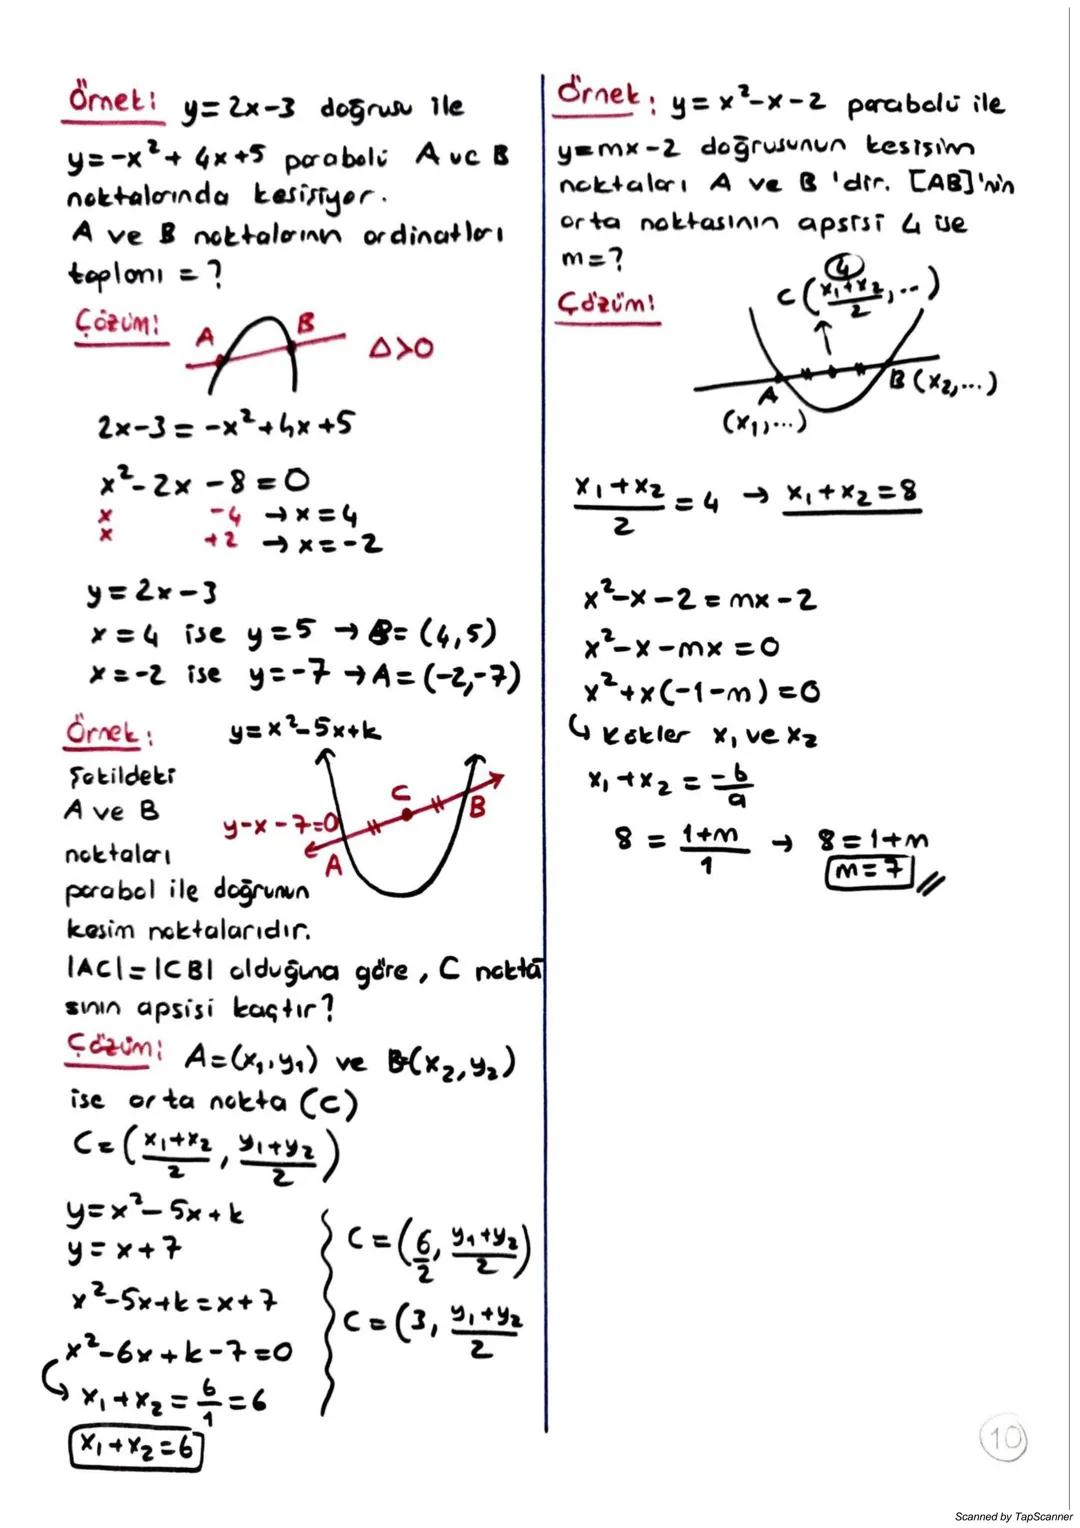 Örnek: y=2x-3 doğrusu ile
y=-x²+4x+5 parabolü A ve B
noktalarında kesişiyor.
A ve B noktalarının ordinatları
toplamı = ?
Çözüm:
A
B
Δ>0
2x-3=-x²+4x+5
x²-2x-8=0
x -4 → x=4
x +2 → x=-2
y=2x-3
x=4 ise y=5 → B=(4,5)
x=-2 ise y=-7 → A=(-2,-7)
Örnek:
y=x²-5x+k
Şekildeki
A ve B
noktaları
y-x-7=0
A
C
B
parabol ile doğrunun
kesim noktalarıdır.
|AC|=|CB| olduğuna göre, C nokta
sının apsisi kaçtır?
Çözüm: A=(x₁,y₁) ve B=(x₂,y₂)
ise orta nokta (C)
C=(x₁+x₂/2, y₁+y₂/2)
y=x²-5x+k
y=x+7
x²-5x+k=x+7
x²-6x+k-7=0
↳ x₁+x₂=6/1=6
x₁+x₂=6
C=(6/2, y₁+y₂/2)
C=(3, y₁+y₂/2
Örnek: y=x²-x-2 parabolü ile
y=mx-2 doğrusunun kesişim
noktaları A ve B'dir. [AB]'nin
orta noktasının apsisi 4 ise
m=?
Çözüm:
4
C(x₁+x₂/2,...)
A
(x₁,...)
B(x₂,...)
x₁+x₂/2=4 → x₁+x₂=8
x²-x-2=mx-2
x²-x-mx=0
x²+x(-1-m)=0
↳ Kökler x₁ ve x₂
x₁+x₂=-b/a
8=1+m/1 → 8=1+m
m=7 //
10
Scanned by TapScanner